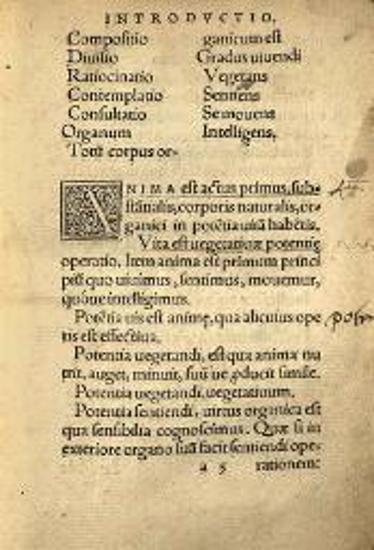 INTRODVCTIO.
Compositio ganicum est
Diuisio Gradus uiuendi
Ratiocinatio Vegetans
Contemplatio Sentiens
Consultatio Se mouens
Organum Intelligens.
Totū corpus or-
ANIMA est actus primus, sub-
stātialis, corporis naturalis, or-
ganici in potētia uitā habētis.
Vita est uegetatiuæ potentię
operatio. Item anima est primum princi
piū quo uiuimus, sentimus, mouemur,
quóue intelligimus.
Potētia uis est animę, qua alicuius ope
ris est effectiua.
Potentia uegetandi, est qua anima nu
trit, auget, minuit, suū ue ꝓducit simile.
Potentia uegetandi, uegetatiuum.
Potentia sentiendi, uirtus organica est
qua sensibilia cognoscimus. Quæ si in
exteriore organo suā facit sentiendi ope-
a 5 rationem: